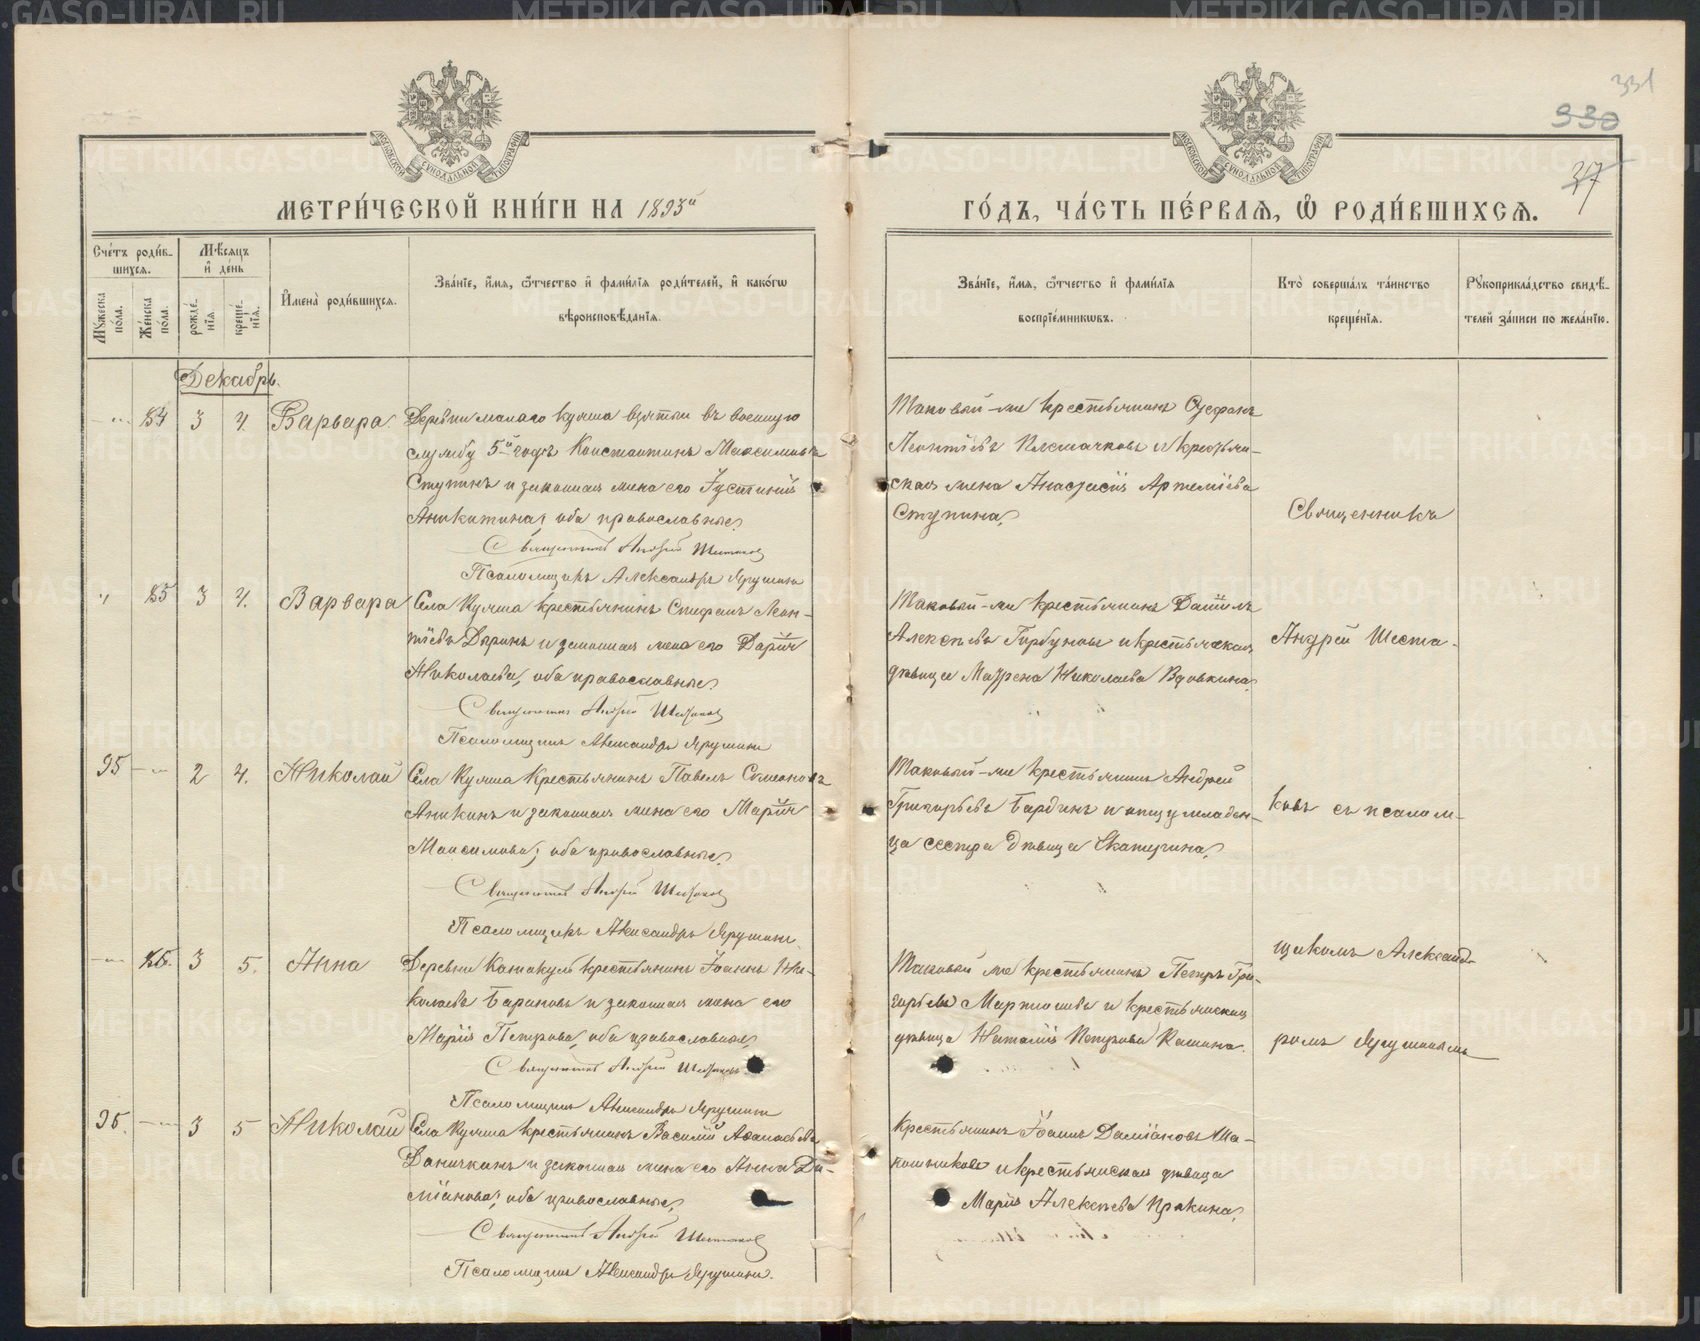 331
930
37
МЕТРИ́ЧЕСКОЙ КНИ́ГИ НА 1893й
ГО́ДЪ, ЧА́СТЬ ПЕ́РВАЯ, Ѡ РОДИ́ВШИХСЯ.
Сче́тъ роди́в-
шихся.
Му́жеска
по́ла.
Же́нска
по́ла.
Мѣ́сяцъ
и҆ де́нь
рожде́-
нїя.
креще́-
нїя.
И҆мена̀ роди́вшихся.
Зва́нїе, и҆́мя, ѻ҆́тчество и҆ фами́лїя роди́телей, и҆ како́гѡ
вѣроисповѣ́данїя.
Зва́нїе, и҆́мя, ѻ҆́тчество и҆ фами́лїя
воспрїе́мникѡвъ.
Кто̀ соверша́лъ та́инство
креще́нїя.
Рꙋкоприкла́дство свидѣ́-
телей за́писи по жела́нїю.
Декабрь.
84 3 4. Варвара.
Деревни малаго Куяша взятый въ военную
службу 5й годъ Константинъ Максимовъ
Ступинъ и законная жена его Іустинія
Аникитина; оба православные.
Священникъ Андрей Шестаковъ
Псаломщикъ Александръ Ярушинъ
Таковой-же крестьянинъ Стефанъ
Леонтіевъ и крестьян-
ская жена Анастасія Артеміева
Ступина.
85 3 4. Варвара
Села Куяша крестьянинъ Стефанъ Леон-
тіевъ и законная жена его Дарія
Николаева, оба православные.
Священникъ Андрей Шестаковъ
Псаломщикъ Александръ Ярушинъ
Таковой-же крестьянинъ Даніилъ
Алексѣевъ Горбуновъ и крестьянская
дѣвица Матрена Николаева Вдовкина.
95 2 4. Николай
Села Куяша Крестьянинъ Павелъ Симеоновъ
Аникинъ и законная жена его Марія
Максимова; оба православные.
Священникъ Андрей Шестаковъ
Псаломщикъ Александръ Ярушинъ
Таковый-же крестьянинъ Андрей
Григорьевъ Бардинъ и отцу младен-
ца сестра дѣвица Екатерина.
86. 3 5. Анна
Деревни крестьянинъ Іоаннъ Ни-
колаевъ Бариновъ и законная жена его
Марія Петрова, оба православные.
Священникъ Андрей Шестаковъ
Псаломщикъ Александръ Ярушинъ
Таковой же крестьянинъ Петръ Гри-
горьевъ и крестьянская
дѣвица Наталія Петрова
96. 3 5 Николай
Села Куяша крестьянинъ Василій Аѳанасьевъ
и законная жена его Анна Да-
міанова; оба православные.
Священникъ Андрей Шестаковъ
Псаломщикъ Александръ Ярушинъ.
Крестьянинъ Іоаннъ Даміановъ
и крестьянская дѣвица
Марія Алексѣева
Священникъ
Андрей Шеста-
ковъ съ псалом-
щикомъ Александ-
ромъ Ярушинымъ
METRIKI.GASO-URAL.RU